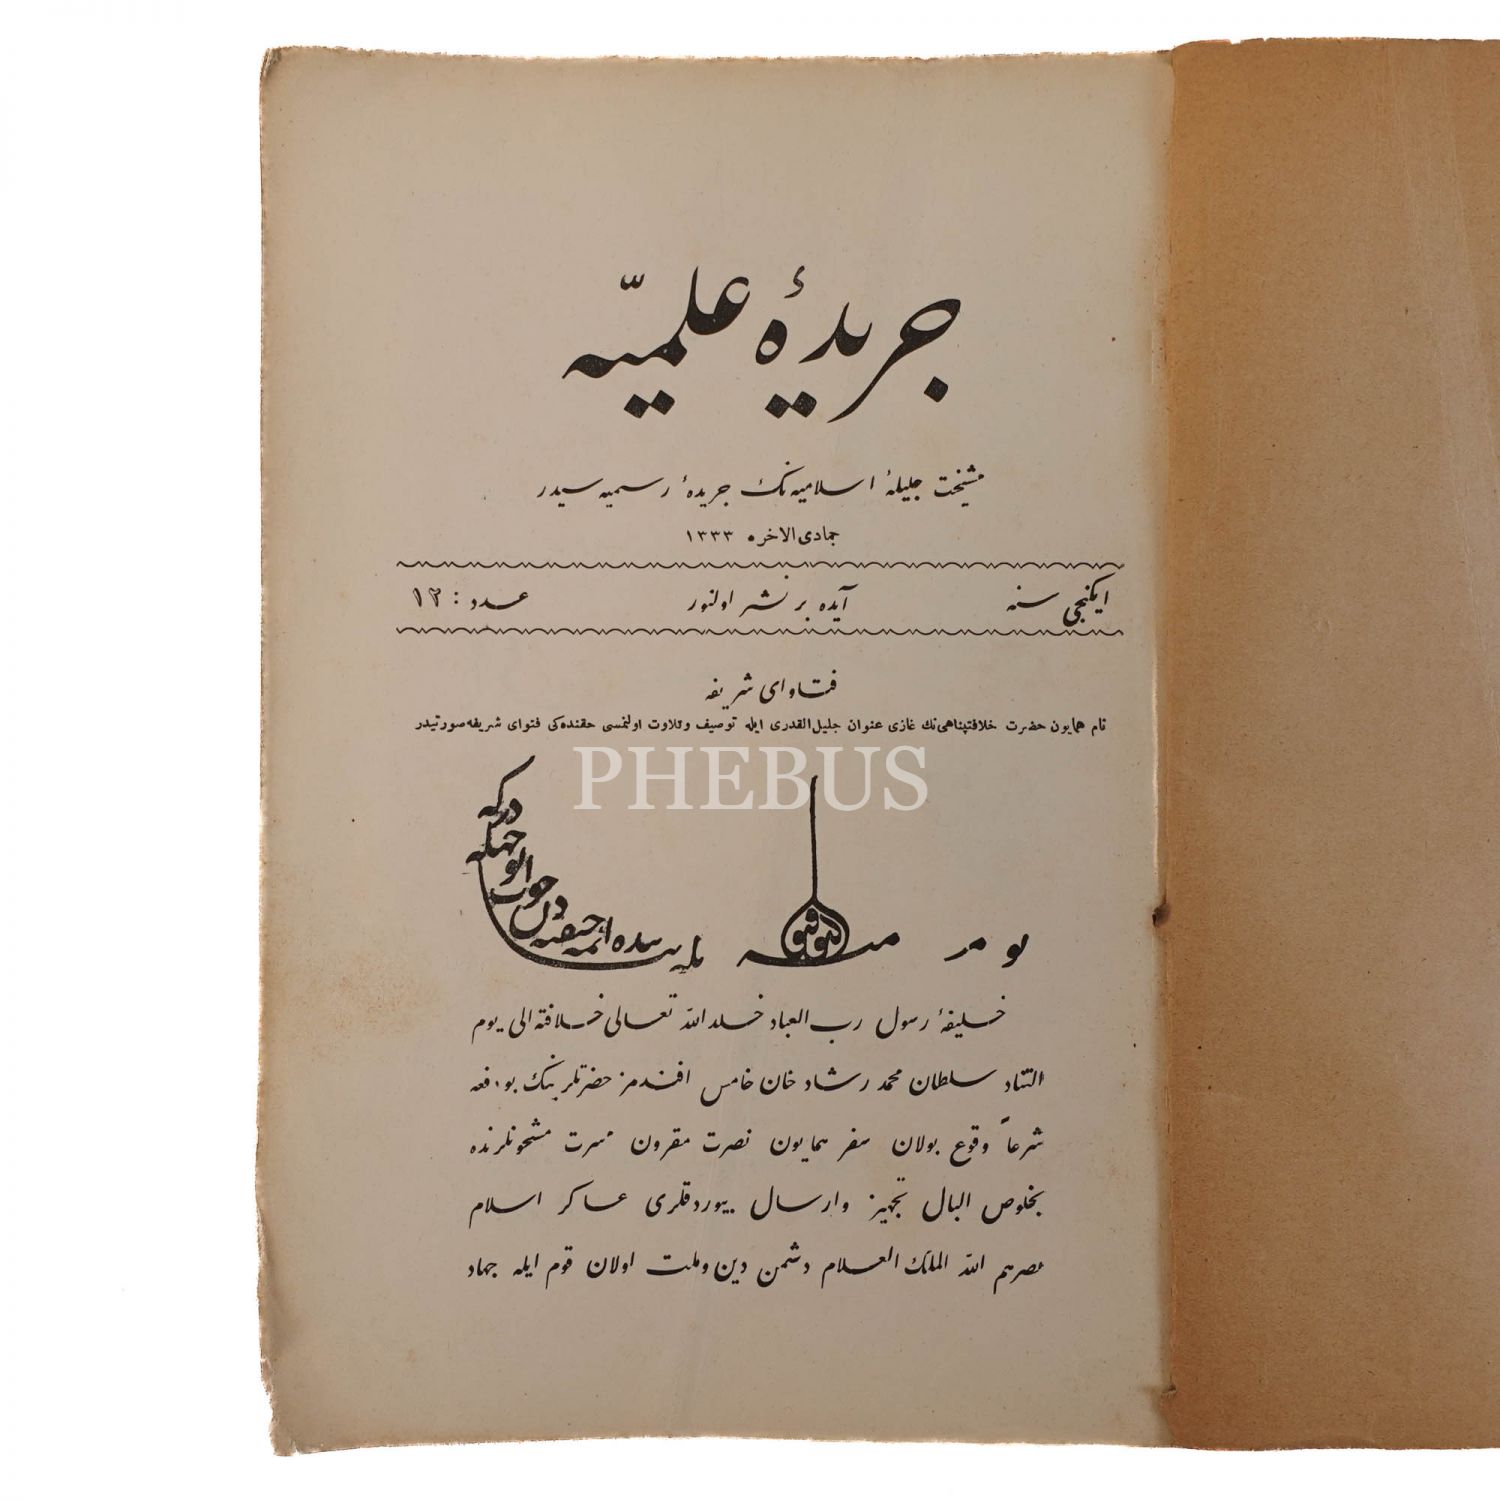 جريدۀ علميّه
مشيخت جليلۀ اسلاميه‌نك جريدۀ رسميه‌سيدر
جمادى الآخره ١٣٣٣
ايكنجى سنه آيده بر نشر اولنور عدد : ١٢
فتاواى شريفه
نام همايون حضرت خلافتپناهى‌نك غازى عنوان جليل القدرى ايله توصيف وتلاوت اولنمسى حقنده‌كى فتواى شريفه صورتيدر
PHEBUS
بو مسئله بابنده ائمۀ حنفيه‌دن جواب نه وجهله‌دركه
منه التوفيق
خليفۀ رسول رب العباد خلد الله تعالى خلافته الى يوم
التناد سلطان محمد رشاد خان خامس افندمز حضرتلرينك بو دفعه
شرعاً وقوع بولان سفر همايون نصرت مقرون مسرت مشحونلرنده
بخلوص البال تجهيز وارسال بيوردقلرى عساكر اسلام
نصرهم الله الملك العلام دشمن دين وملت اولان قوم ايله جهاد